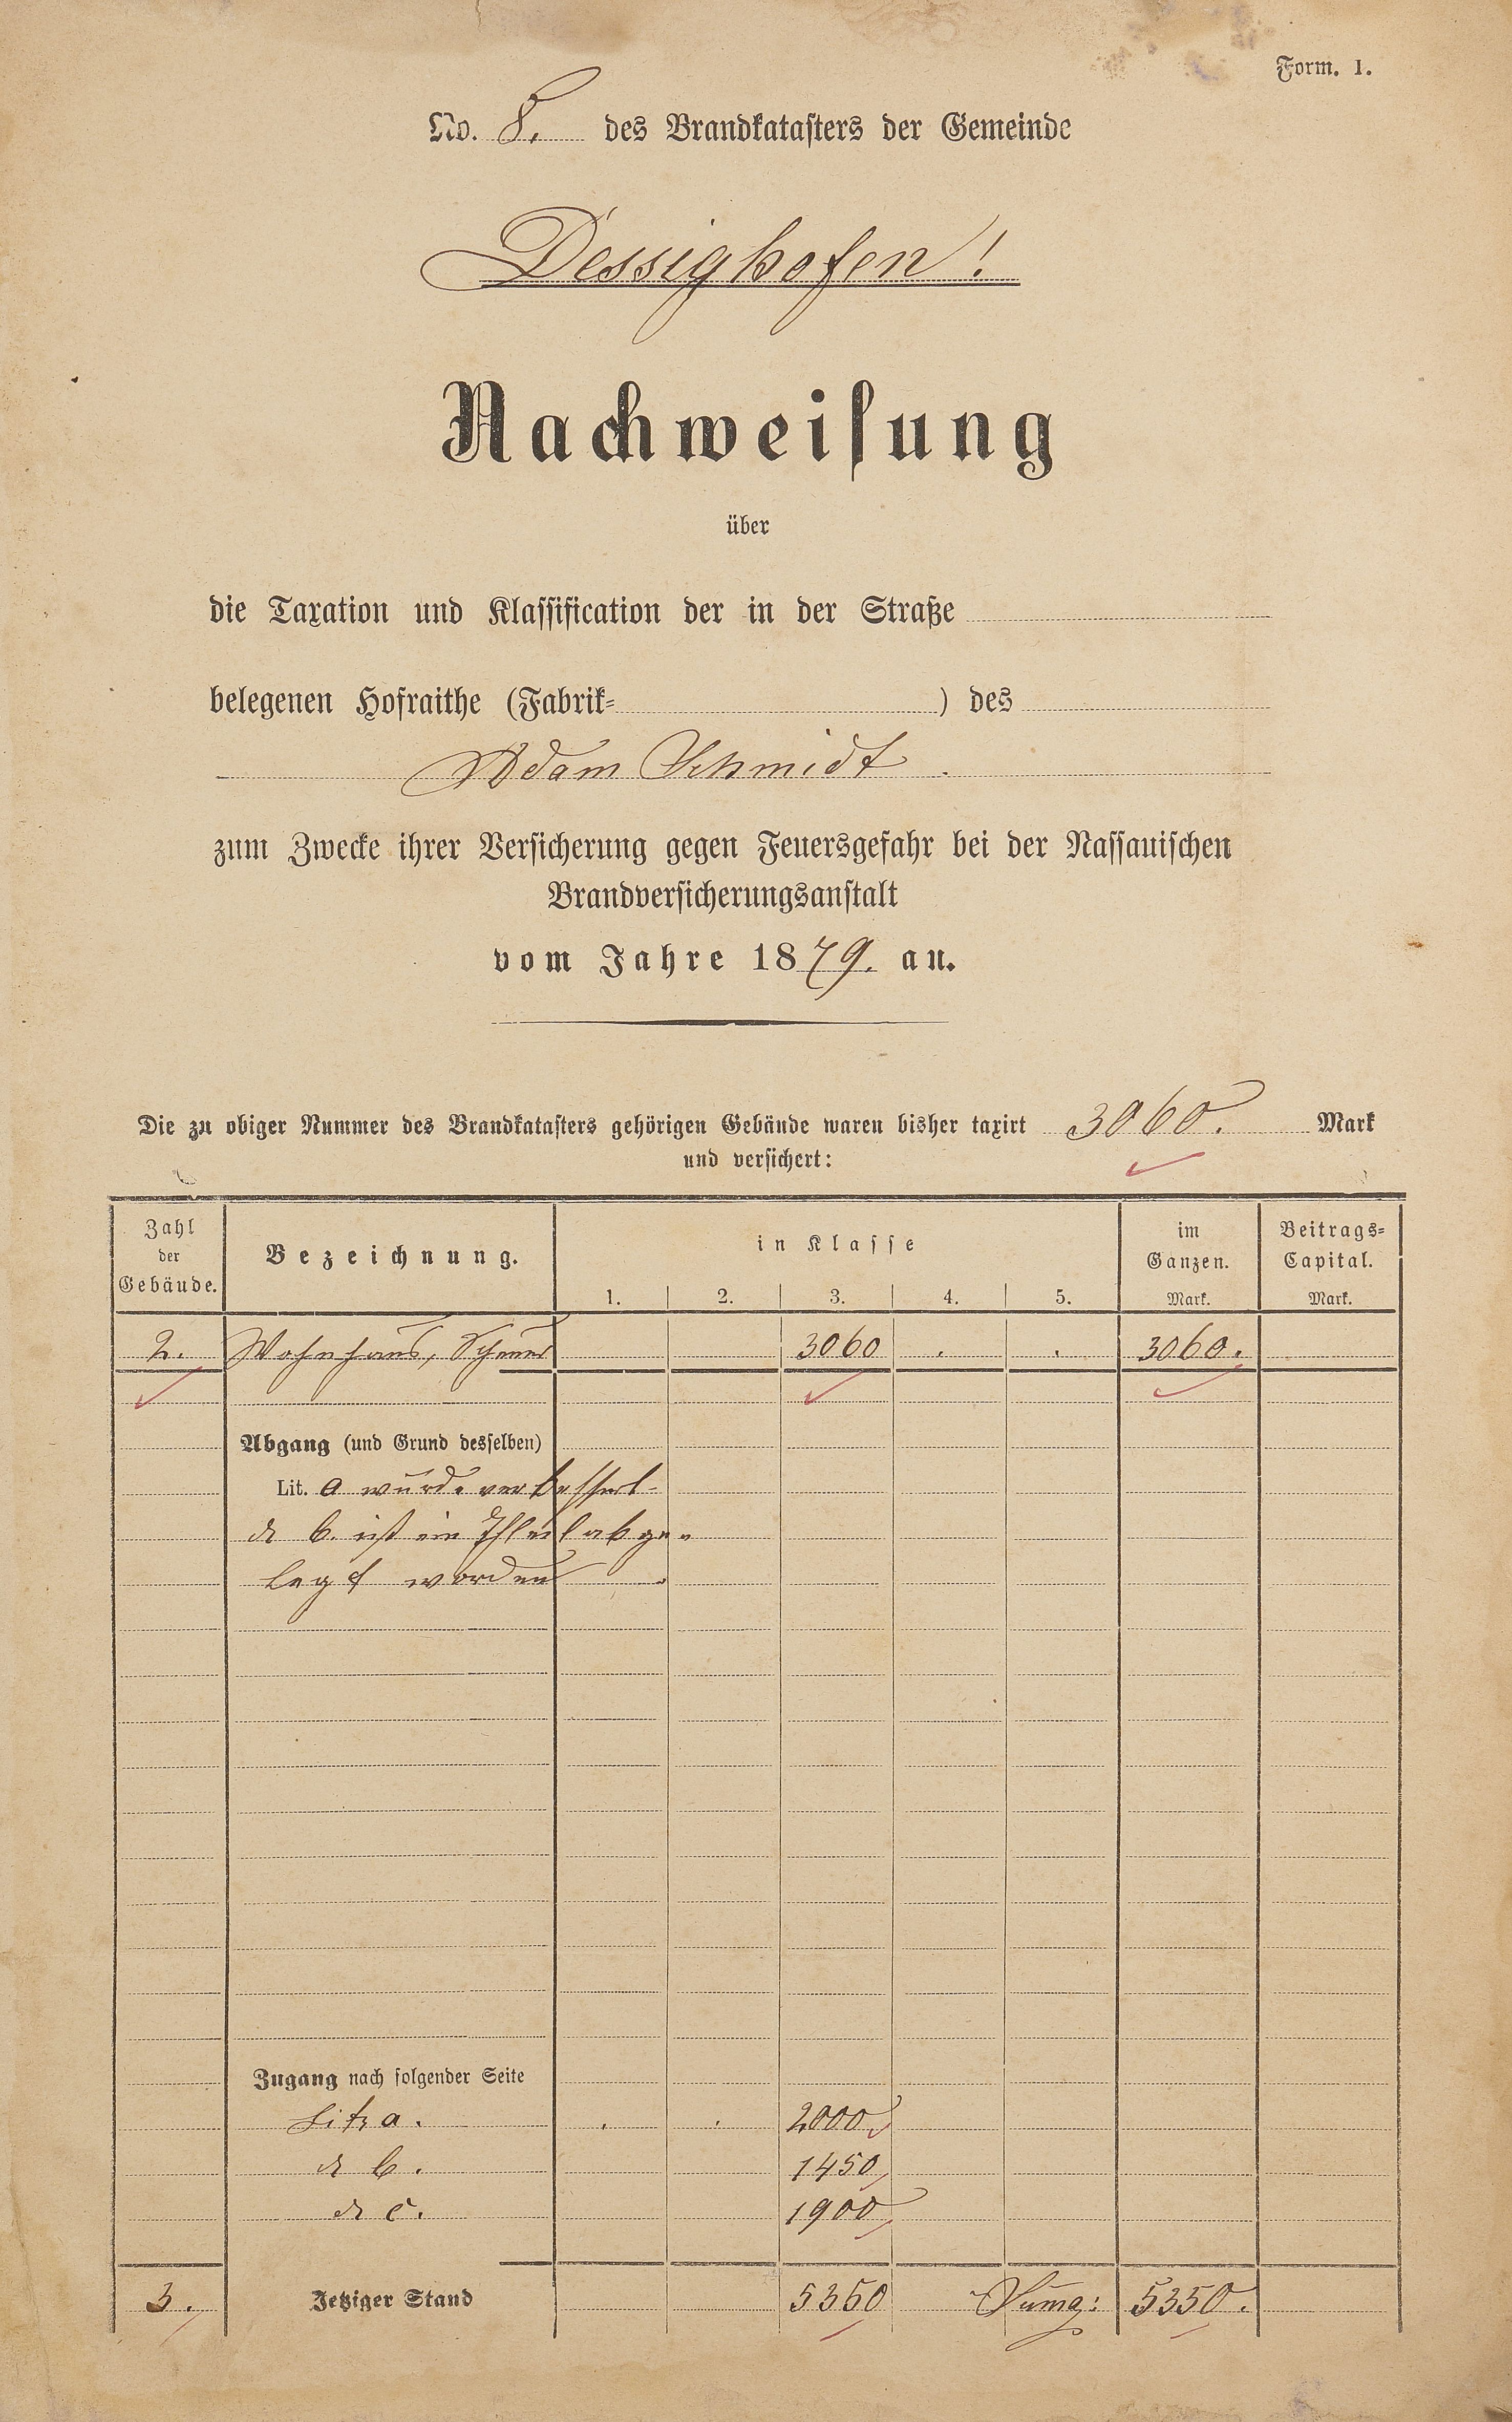 Form. 1.
No. 8. des Brandkatasters der Gemeinde
Dessighofen!
Nachweisung
über
die Taxation und Klassification der in der Straße
belegenen Hofraithe (Fabrik- ) des
Adam Schmidt.
zum Zwecke ihrer Versicherung gegen Feuersgefahr bei der Nassauischen
Brandversicherungsanstalt
vom Jahre 1879. an.
Die zu obiger Nummer des Brandkatasters gehörigen Gebäude waren bisher taxirt 3060. Mark
und versichert:
Zahl der Gebäude. Bezeichnung. in Klasse im Ganzen. Beitrags-Capital.
1. 2. 3. 4. 5. Mark. Mark.
2. Wohnhaus, Scheuer 3060 . . 3060.
Abgang (und Grund desselben)
Lit. a wurde verbessert
do b. ist ein Theil abge-
legt worden
Zugang nach folgender Seite
Litr a. . . 2000
do b. 1450
do c. 1900
3. Jetziger Stand 5350 Suma: 5350.